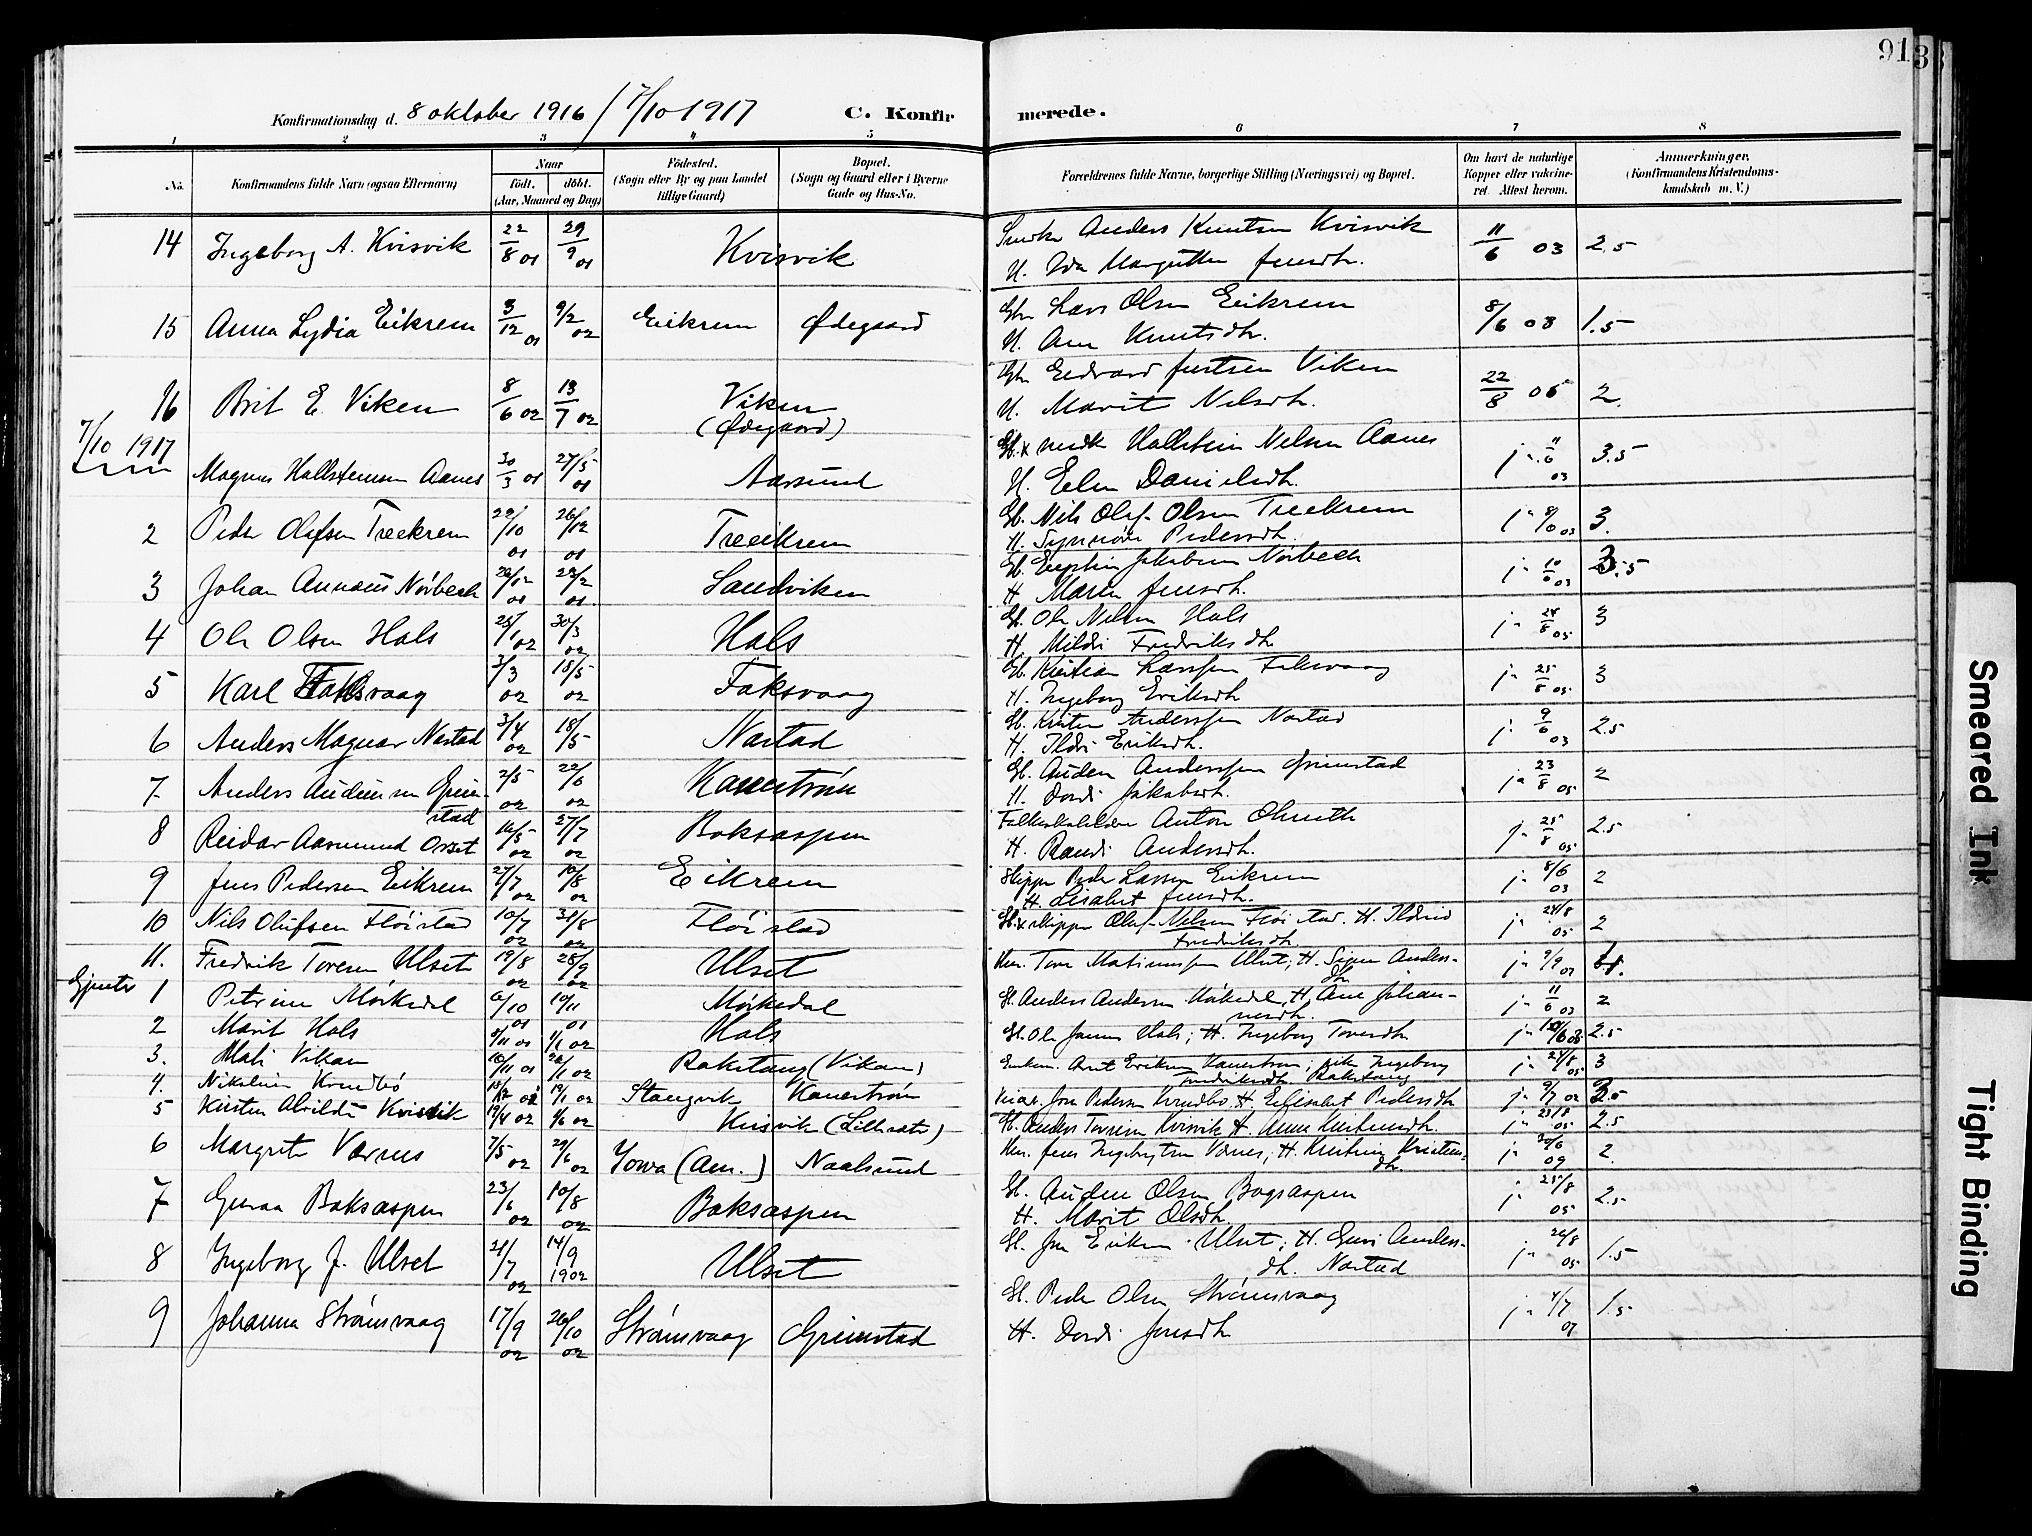 91
3
Konfirmationsdag d. 8 oktober 1916 / 7/10 1917
C. Konfirmerede.
1 2 3 4 5 6 7 8
No.
Konfirmandens fulde Navn (ogsaa Efternavn)
Naar
födt. döbt.
(Aar, Maaned og Dag)
Födested.
(Sogn eller By og paa Landet tillige Gaard)
Bopæl.
(Sogn og Gaard eller i Byerne Gade og Hus-No.
Forældrenes fulde Navne, borgerlige Stilling (Næringsvei) og Bopæl.
Om havt de naturlige Kopper eller vakcineret. Attest herom.
Anmærkninger.
(Konfirmandens Kristendomskundskab m. V.)
14 Ingeborg A. Kvisvik 22/8 01 29/9 01 Kvisvik Anders Knutsen Kvisvik 11/6 03 2.5
H. Ida Margrethe Jensdtr.
15 Anna Lydia Eikrem 3/12 01 9/2 02 Eikrem Ødegaard Gbr Lars Olsen Eikrem 8/6 03 1.5
H. Ane Knutsdtr.
16 Brit E. Viken 8/6 02 13/7 02 Viken (Ødegaard) Gbr Edvard Jentsen Viken 22/8 05 2.
H. Marit Nilsdtr.
7/10 1917
Magnus Hallstensen Aanes 30/3 01 27/5 01 Aarsund Hallstein Nilsen Aanes j. 11/6 03 3.5
H. Elen Danielsdtr.
2 Peder Olufsen Treekrem 22/10 01 26/12 01 Treeikrem G. Nils Oluf Olsen Treekrem j. 8/6 03 3.
H. Synnöve Pedersdtr.
3 Johan Annæus Nørbech Sandviken Jakobsen Nørbech j. 10/6 03 3.5
H. Maren Jensdtr.
4 Ole Olsen Hals 25/1 02 30/3 02 Hals G. Ole Nilsen Hals j. 24/8 05 3
H. Mildri Fredriksdtr
5 Karl Faksvaag 3/3 02 18/5 02 Faksvaag G. Kristian Larssen Faksvaag j. 25/8 05 3
H. Ingeborg Eriksdtr
6 Anders Magnar Nastad 3/4 02 18/5 Nastad G. Kristen Anderssen Nastad j. 9/6 03 2.5
H. Ildri Eriksdtr.
7 Anders Audunsen Grimstad 2/5 02 22/6 02 Kanestrøm G. Auden Anderssen Grimstad j. 23/8 05 2
H. Dordi Jakobsdtr.
8 Reidar Aasmund Orset 16/5 02 27/7 02 Boksaspen Anton j. 25/8 05 2.5
H. Randi Andersdtr.
9 Jens Pedersen Eikrem 27/7 02 10/8 02 Eikrem Skipper Peder Larssen Eikrem j. 8/6 03 2
H. Lisabet Jensdtr.
10 Nils Olufsen Fløistad 10/7 02 31/8 02 Fløistad skipper Oluf Nilsen Fløistad. H. Ildrid Fredriksdtr j. 24/8 05 2
11. Fredrik Toresen Ulset 19/8 02 28/9 02 Ulset Tore Mathiassen Ulset; H. Signe Andersdtr j. 9/9 07
Gjenter
1 Petrine Mørkedal 6/10 01 10/11 01 Mørkedal G. Anders Andersen Mørkedal, H. Ane Johannesdtr. j. 11/6 03 2
2 Marit Hals 5/11 01 1/1 02 Hals G. Ole Jonsen Hals; H. Ingeborg Toresdtr 2.5
3. Mali Vikan Rakstang (Vikan) Arnt Eriksen Kanestrøm; pike Ingeborg Fredriksdtr Rakstang j. 24/8 05 3
4. Nikoline Krudbø 19/1 02 Stangvik Kanestrøm Jon Pedersen Krudbø. H. Elisabet Pedersdtr j. 9/7 02 2.5
5 Kirsten Alvilde Kvisvik 19/4 02 Kvisvik (Lillesæter) G. Anders Toresen Kvisvik H. Anne Knutsendtr. j. 23/8 05 2.5
6 Margrete Værnes 7/5 02 29/6 02 Iowa (Am.) Naalsund Jens Ingebrigtsen Værnes; H. Kristine Kristensdtr. j. 30/6 09 2.
7 Guraa Boksaspen 23/6 02 10/8 02 Boksaspen G. Auden Olsen Bogsaspen j. 25/8 05 2.5
H. Marit Olsdtr.
8 Ingeborg J. Ulset 21/7 02 14/9 1902 Ulset G. Jon Eriksen Ulset; H. Guri Andersdtr. Nastad j. 26/8 05 1.5
9 Johanna Strømsvaag 17/9 02 26/10 02 Strømsvaag Grimstad G. Peder Olsen Strømsvaag j. 4/7 07 1.5
H. Dordi Jonsdtr
Smeared Ink
Tight Binding